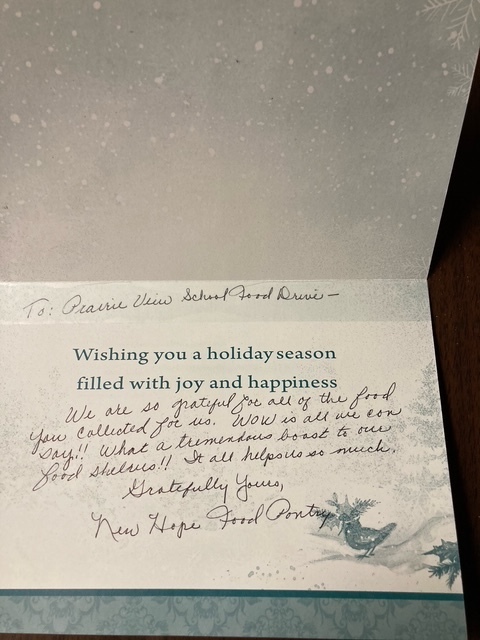 To: Prairie View School Food Drive -
Wishing you a holiday season
filled with joy and happiness
We are so grateful for all of the food
you collected for us. WOW is all we can
say!! What a tremendous boost to our
food shelves!! It all helps us so much.
Gratefully Yours,
New Hope Food Pantry